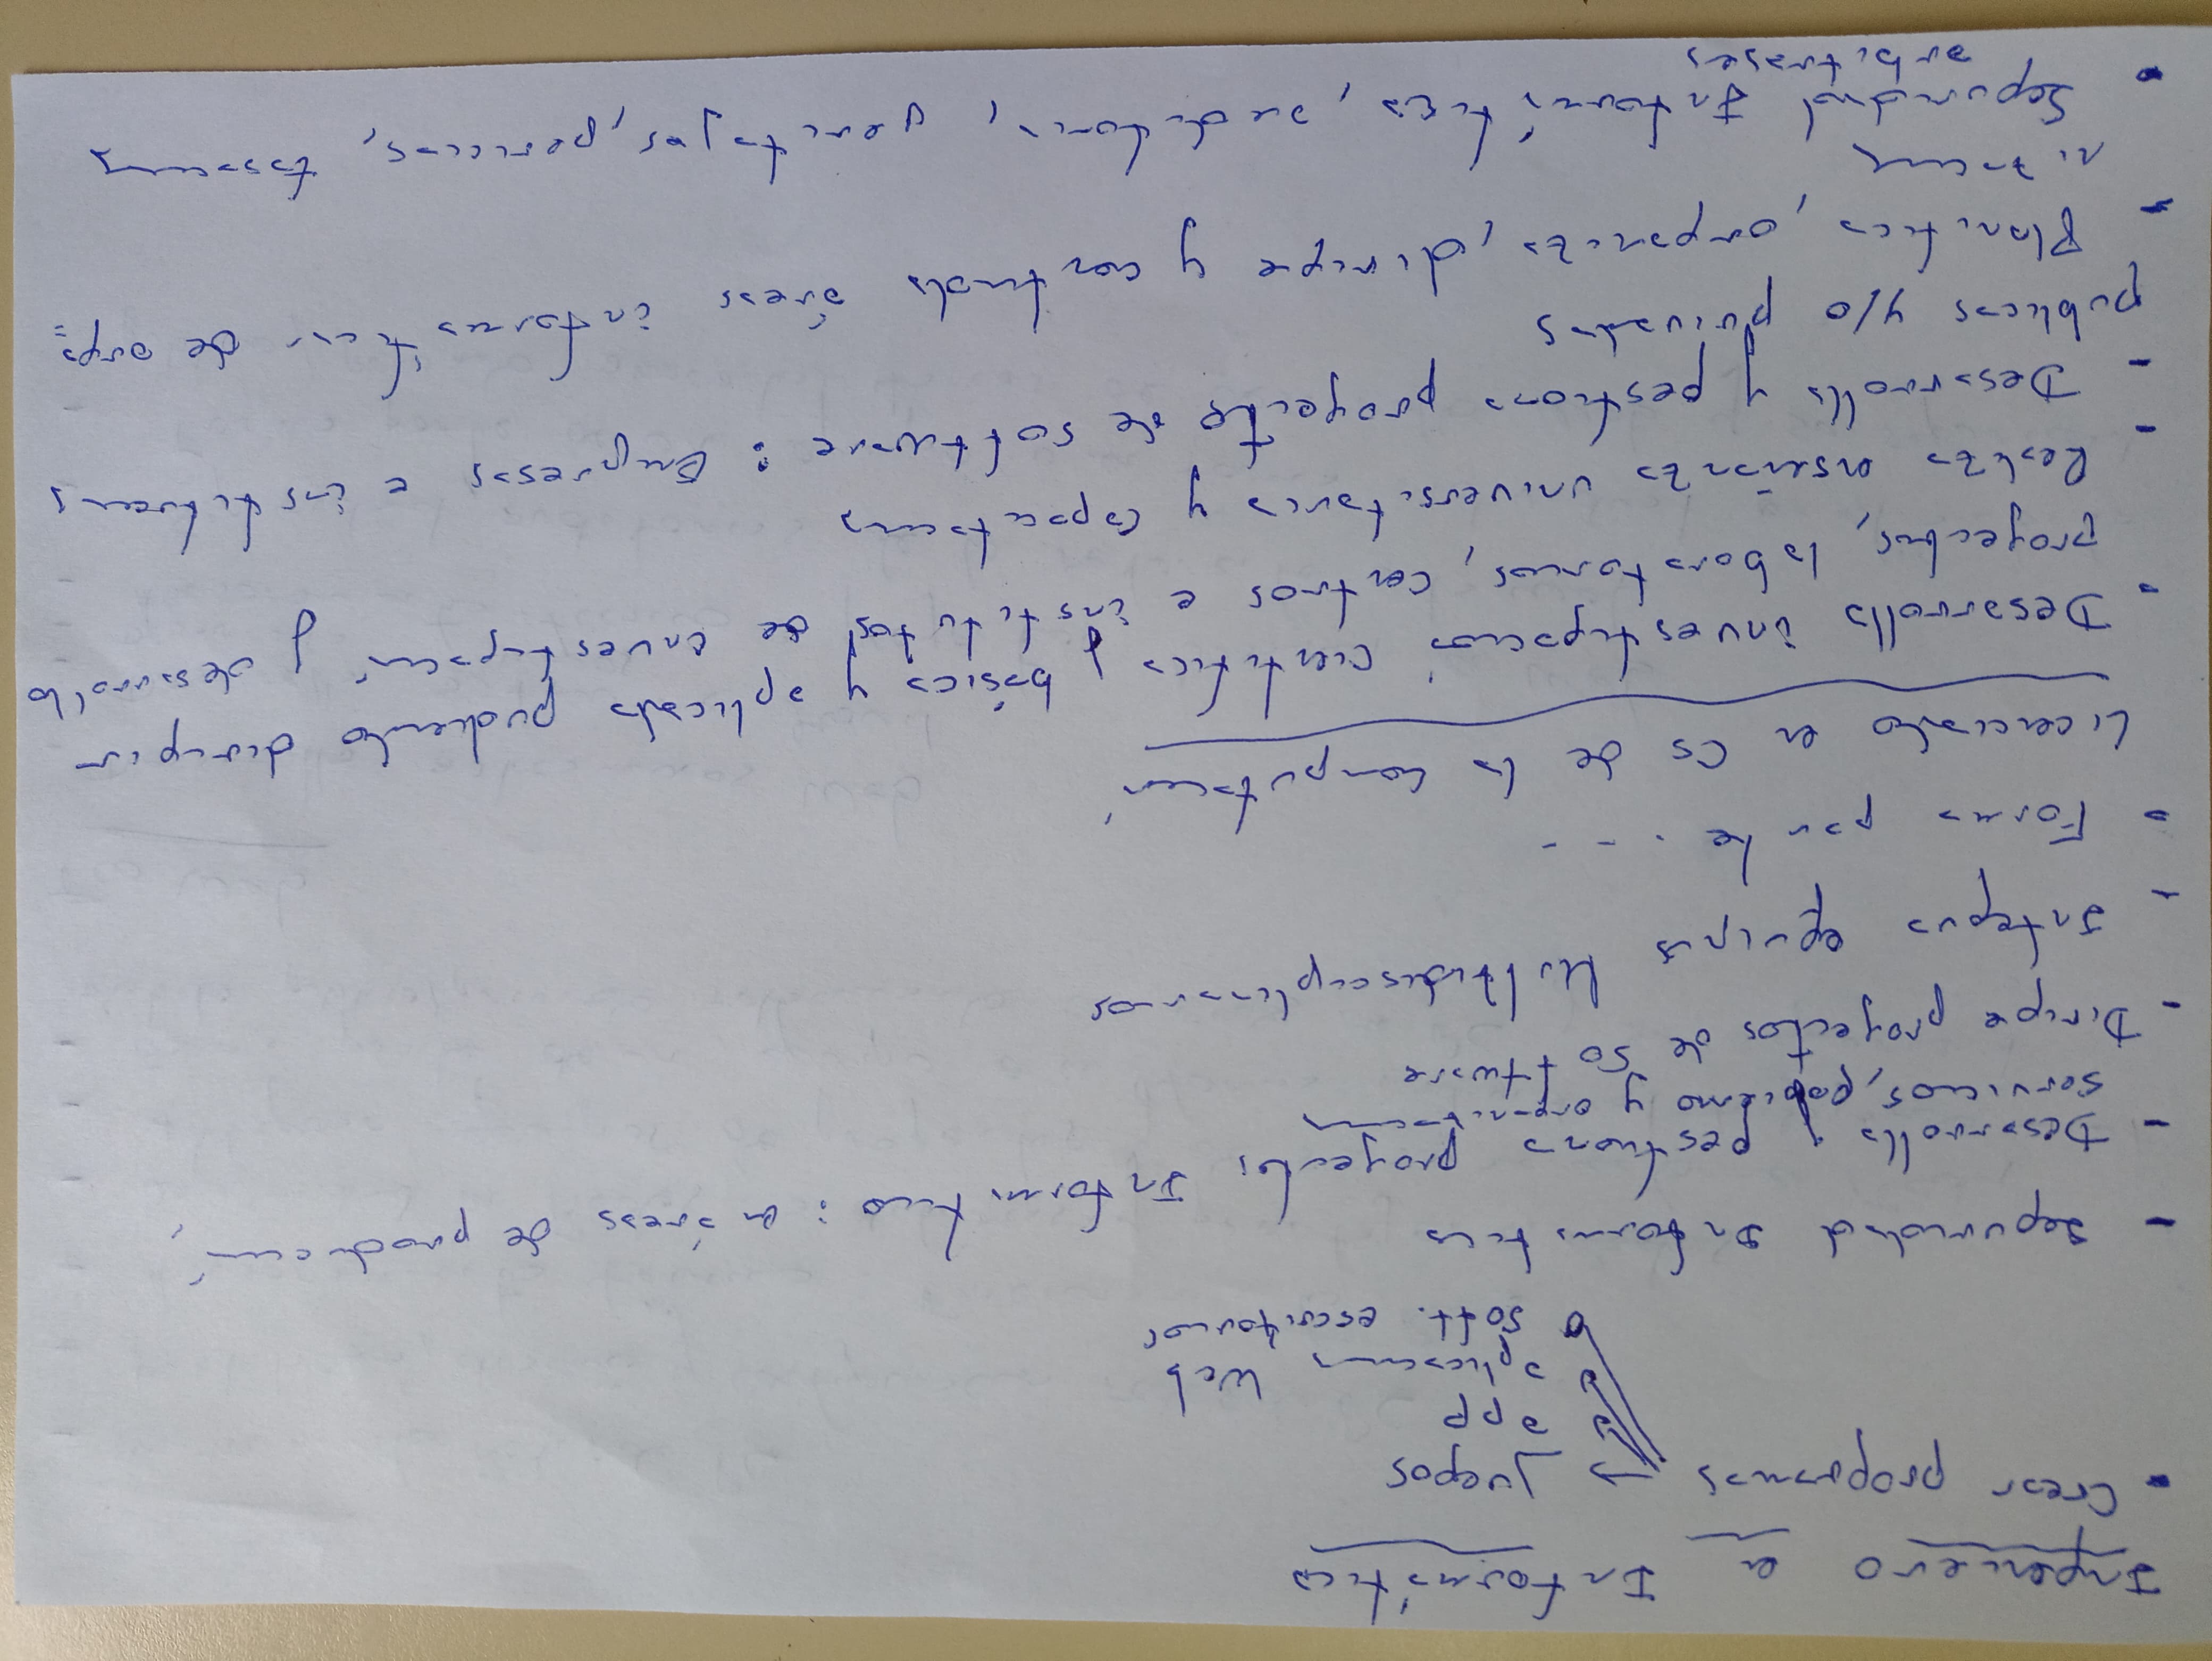 Ingeniero en Informática
- Crear programas → juegos
app
aplicaciones Web
soft. escritorios
- Seguridad Informatica
- Desarrolla y gestiona proyectos Informatico : en áreas de producción,
servicios, gobierno y organizaciones
- Dirige proyectos de software
- Integra equipos Multidisciplinarios
- Forma parte . - -
Licenciado en Cs de la Computación
- Desarrolla investigación cientifica, básica y aplicada pudiendo dirigir
proyectos, laboratorios, centros e institutos de investigación y desarrollo
- Realiza enseñanza universitaria y capacitaciones
- Desarrolla y gestiona proyecto de software : Empresas e instituciones
publicas y/o privadas
- Planifica, organiza, dirige y controla áreas informáticas de orga=
nizaciones
- Seguridad Informática, auditoria, peritajes, pericias, tasaciones
arbitrages